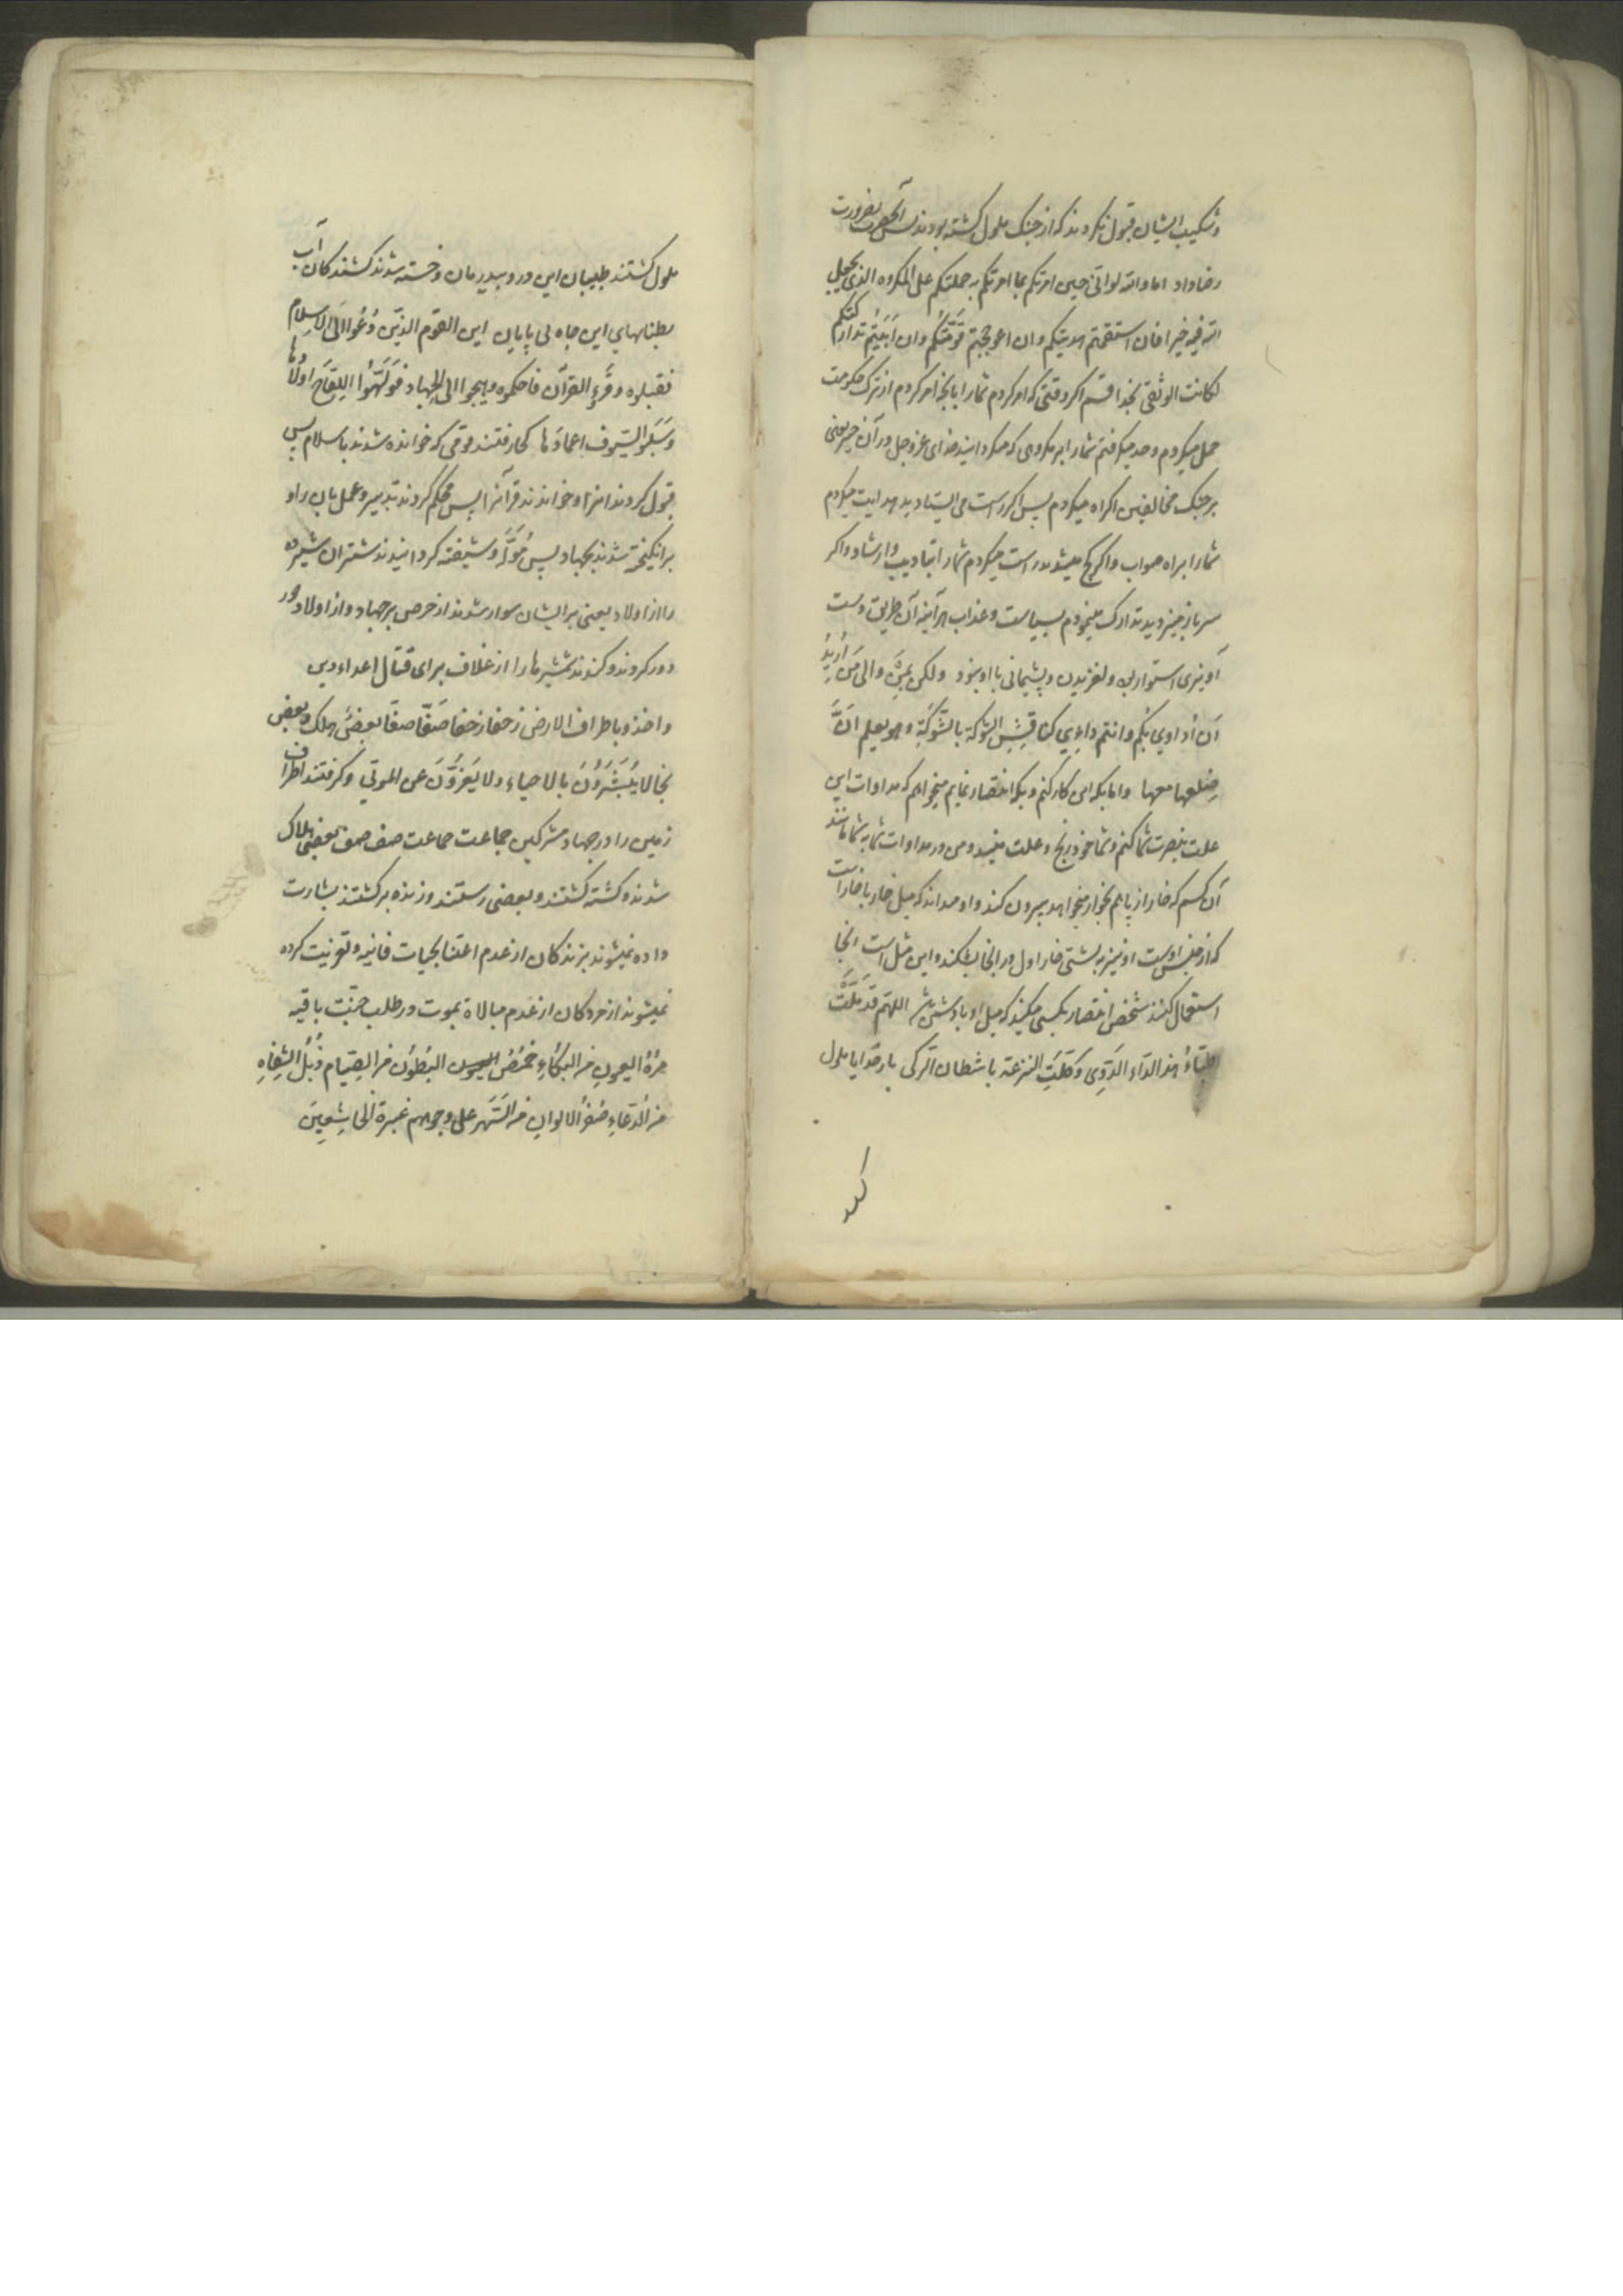 و شکیب ایشان قبول نکردند که از جنک ملول کشته بودند پس آنحضرت بضرورت
رضا داد اما والله لو انی حین امرتکم بما امرتکم به حملتکم علی المکروه الذی یجعل
الله فیه خیرا فان استقمتم هدیتکم وان اعوججتم قَوَّمْتُکُم وان اَبَیْتُم تدارکتکم
لکانت الوثقی بخدا قسم اکر وقتی که امر کردم شما را بانچه امر کردم از ترک حکومت
حمل میکردم و میکفتم شما را بر مکروهی که میکرداند خدای عز و جل در آن خیر یعنی
بر جنک مخالفین اکراه میکردم پس اکر راست می ایستادید هدایت میکردم
شما را براه صواب واکر کج میشدید راست میکردم شما را بتادیب وارشاد واکر
سر باز میزدید تدارک مینمودم بسیاست وعذاب هر آینه آن طریق دست
آویزی استوار بی لغزیدن و پشیمانی با او بنود ولکن بِمَن والی مَن اُرِیدُ
اَن اُداوی بِکُم وانتم داءِی کناقِشِ الشوکة بالشَّوکَةِ وهو یعلم انَّ
ضِلعها معها واما بکه این کار کنم و بکه اختصار نمایم میخواهم که مداوات این
علت بنصرت شما کنم و شما خود رنج و علت منید و من در مداوات شما بشما مانند
آن کسم که خار از پا هم بخار میخواهد بیرون کند و او میداند که میل خار با خار است
که از جنس اوست او نیز به پشتی خار اول در انجا بشکند واین مثل است انجا
استعمال کنند شخص اختصار بکسی میکند که میل او با دشمنش باشد اللهم قَد مَلَّت
اطِبَّاءُ هذا الدَّاءِ الدَّوِی وَکَلَّتِ النزعة باشطان الرکی بار خدایا ملول
ملول کشتند طبیبان این درد بیدرمان و خسته شدند کشندکان آب
بطنابهای این چاه بی پایان این القوم الذین دُعُوا الی الاسلام
فقبلوه وقَرَءُوا القرآن فاحکموه وهیجوا الی الجهاد فوَلَّهُوا اللِقَاحَ اولادها
وسَلَبُوا السُّیوف اغمادَها کجا رفتند قومی که خوانده شدند باسلام پس
قبول کردند انرا و خواندند قرآنرا پس محکم کردند بتدبیر وعمل بان را و
برانکیخته شدند بجهاد پس مُوَلَّه و شیفته کردانیدند شتران شیرده
را از اولاد یعنی بر ایشان سوار شدند از حرص بر جهاد و از اولاد دور
دور کردند و کندند شمشیرها را از غلاف برای قتال اعداء دین
واخذوا باطراف الارض زحفا زحفا صَفّا صفّا بعضٌ هلک وبعض
نجا لا یُبَشَّرُوْنَ بالاحیاء ولا یُعَزَّوْنَ عن الموتی و کرفتند اطراف
زمین را در جهاد مشرکین جماعت جماعت صف صف بعضی هلاک
شدند و کشته کشتند و بعضی رستند و زنده برکشتند بشارت
داده نمیشوند بزندکان از عدم اعتنا بحیات فانیه و تعزیت کرده
نمیشوند از مردکان از عدم مبالاة بموت در طلب جنّت باقیه
مُرْهُ العیونِ من البکاءِ خُمْصُ البُطُون من الصِّیَام ذُبُلُ الشِّفاهِ
من الدُّعاءِ صُفْرُ الالوانِ من السَّهَر علی وجوههم غبرة الخاشِعِینَ